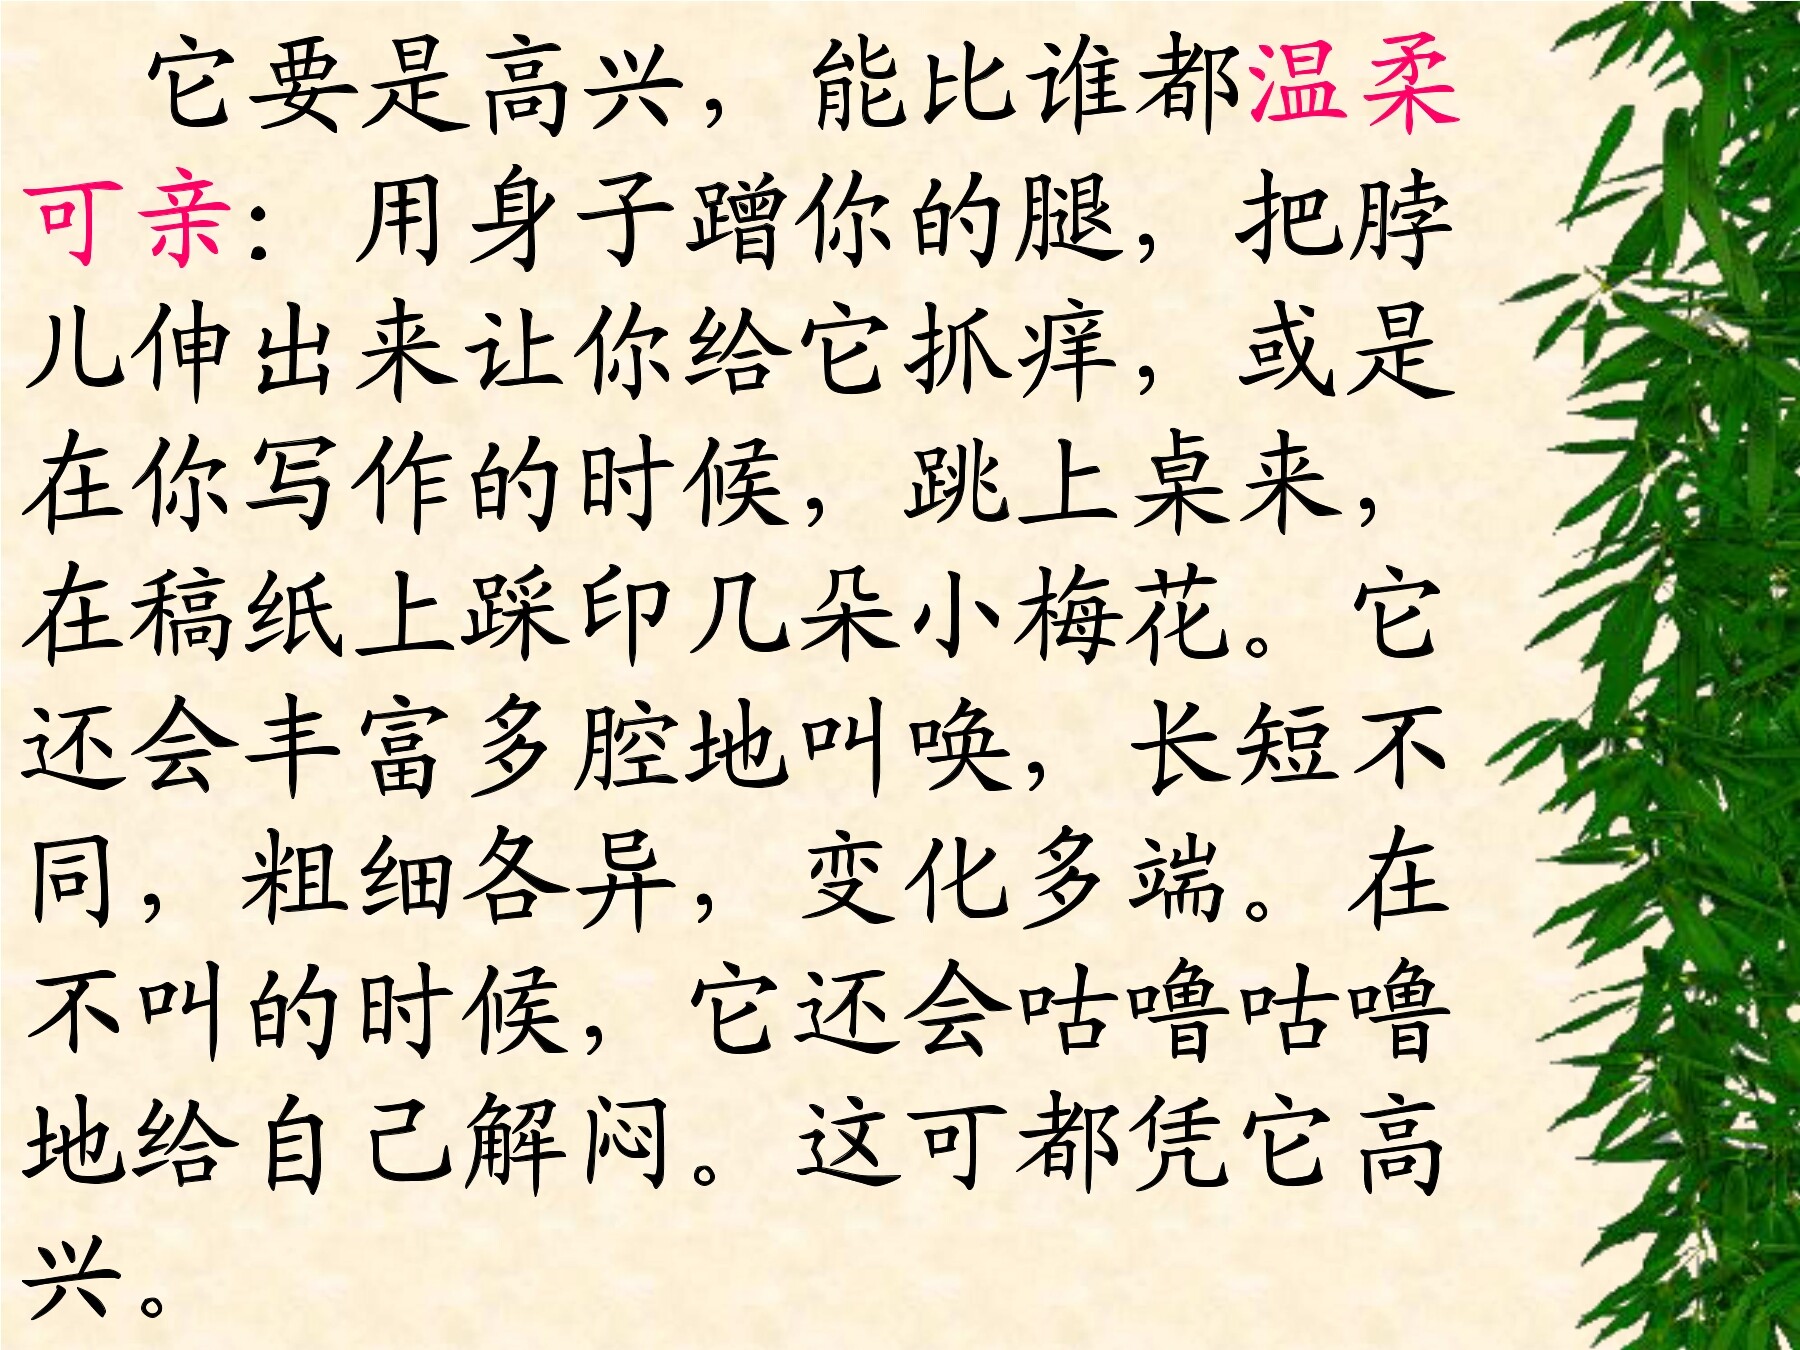 它要是高兴，能比谁都温柔
可亲：用身子蹭你的腿，把脖
儿伸出来让你给它抓痒，或是
在你写作的时候，跳上桌来，
在稿纸上踩印几朵小梅花。它
还会丰富多腔地叫唤，长短不
同，粗细各异，变化多端。在
不叫的时候，它还会咕噜咕噜
地给自己解闷。这可都凭它高
兴。